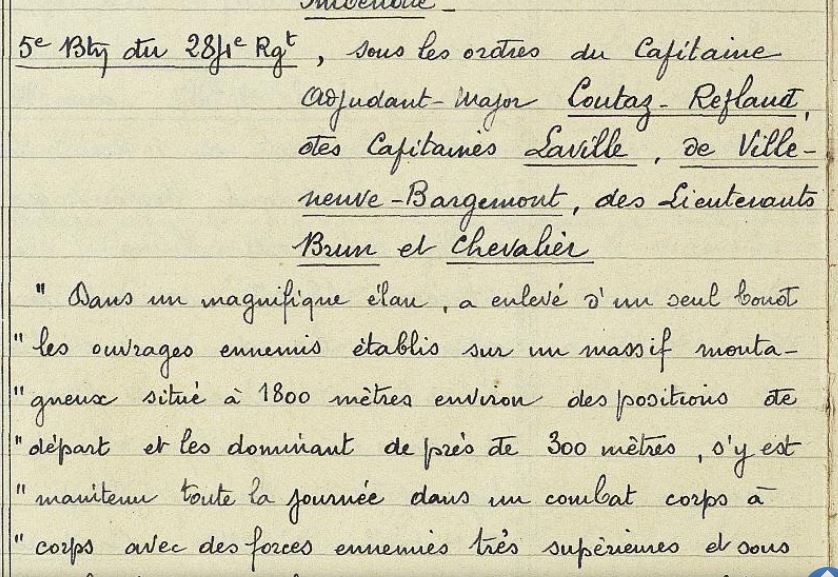 5e Btn du 284e Rgt, sous les ordres du Capitaine
Adjudant-Major Coutaz-Replaud,
des Capitaines Laville, de Ville-
neuve-Bargemont, des Lieutenants
Brun et Chevalier
" Dans un magnifique élan, a enlevé d'un seul bout
" les ouvrages ennemis établis sur un massif monta-
" gneux situé à 1800 mètres environ des positions de
" départ et les dominant de près de 300 mètres, s'y est
" maintenu toute la journée dans un combat corps à
" corps avec des forces ennemies très supérieures et sous